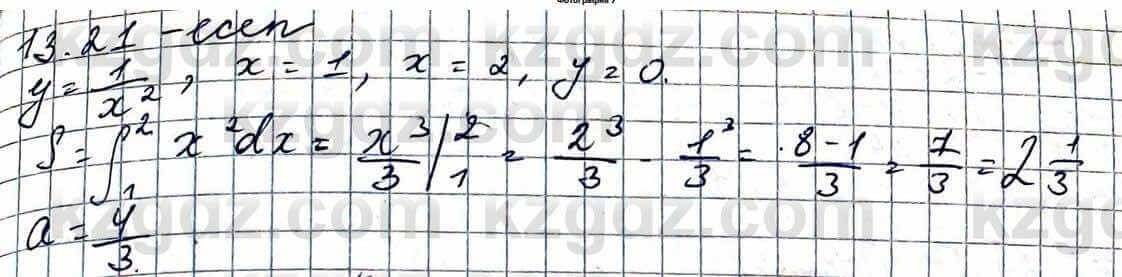 Фотография 7
13.21 - есеп
y = 1/x², x = 1, x = 2, y = 0.
S = ∫₁² x²dx = x³/3 |₁² = 2³/3 - 1³/3 = 8-1/3 = 7/3 = 2 1/3
a = 4/3.
kzgdz.com kzgdz.com kzgdz.com
kzgdz.com
kzgdz.com kzgdz.com kzgdz.com